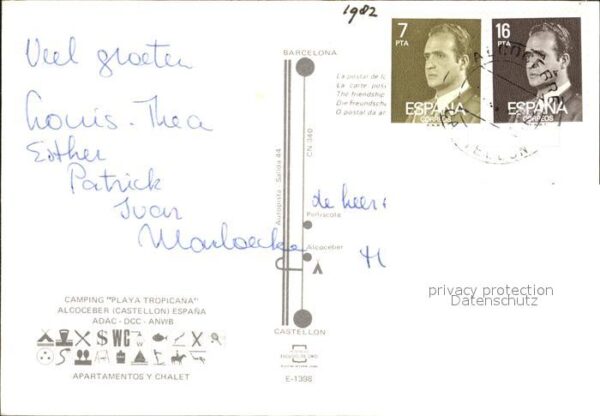 1982
Veel groeten
Louis - Thea
Esther
Patrick
Ivan
de heer
BARCELONA
7
PTA
ESPAÑA
CORREOS
16
PTA
ESPAÑA
CORREOS
ALCOCEBER
CASTELLON
La postal de
La carte
The friendship
Die freundsch
O postal da
Autopista Salida 44
CN 340
Peñiscola
Alcoceber
CASTELLON
E-1398
CAMPING "PLAYA TROPICANA"
ALCOCEBER (CASTELLON) ESPAÑA
ADAC - DCC - ANWB
APARTAMENTOS Y CHALET
privacy protection
Datenschutz